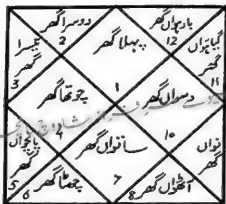 دوسرا گھر
2
بارہواں گھر
12
پہلا گھر
1
تیسرا گھر
3
گیارہواں گھر
11
چوتھا گھر
4
دسواں گھر
10
ساتواں گھر
7
پانچواں گھر
5
نواں گھر
چھٹا گھر
6
آٹھواں گھر
8